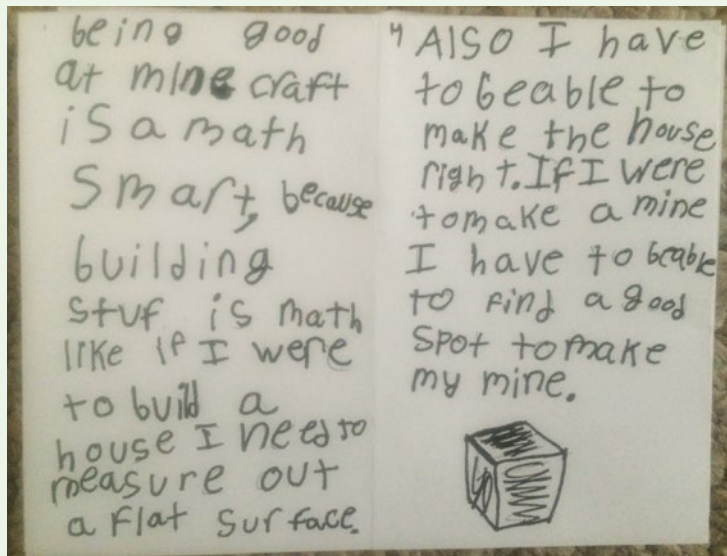 being good
at minecraft
is a math
Smart, because
building
stuf is math
like if I were
to build a
house I need to
measure out
a flat surface.
4 AlSO I have
to beable to
make the house
right. If I were
tomake a mine
I have to beable
to find a good
spot to make
my mine.